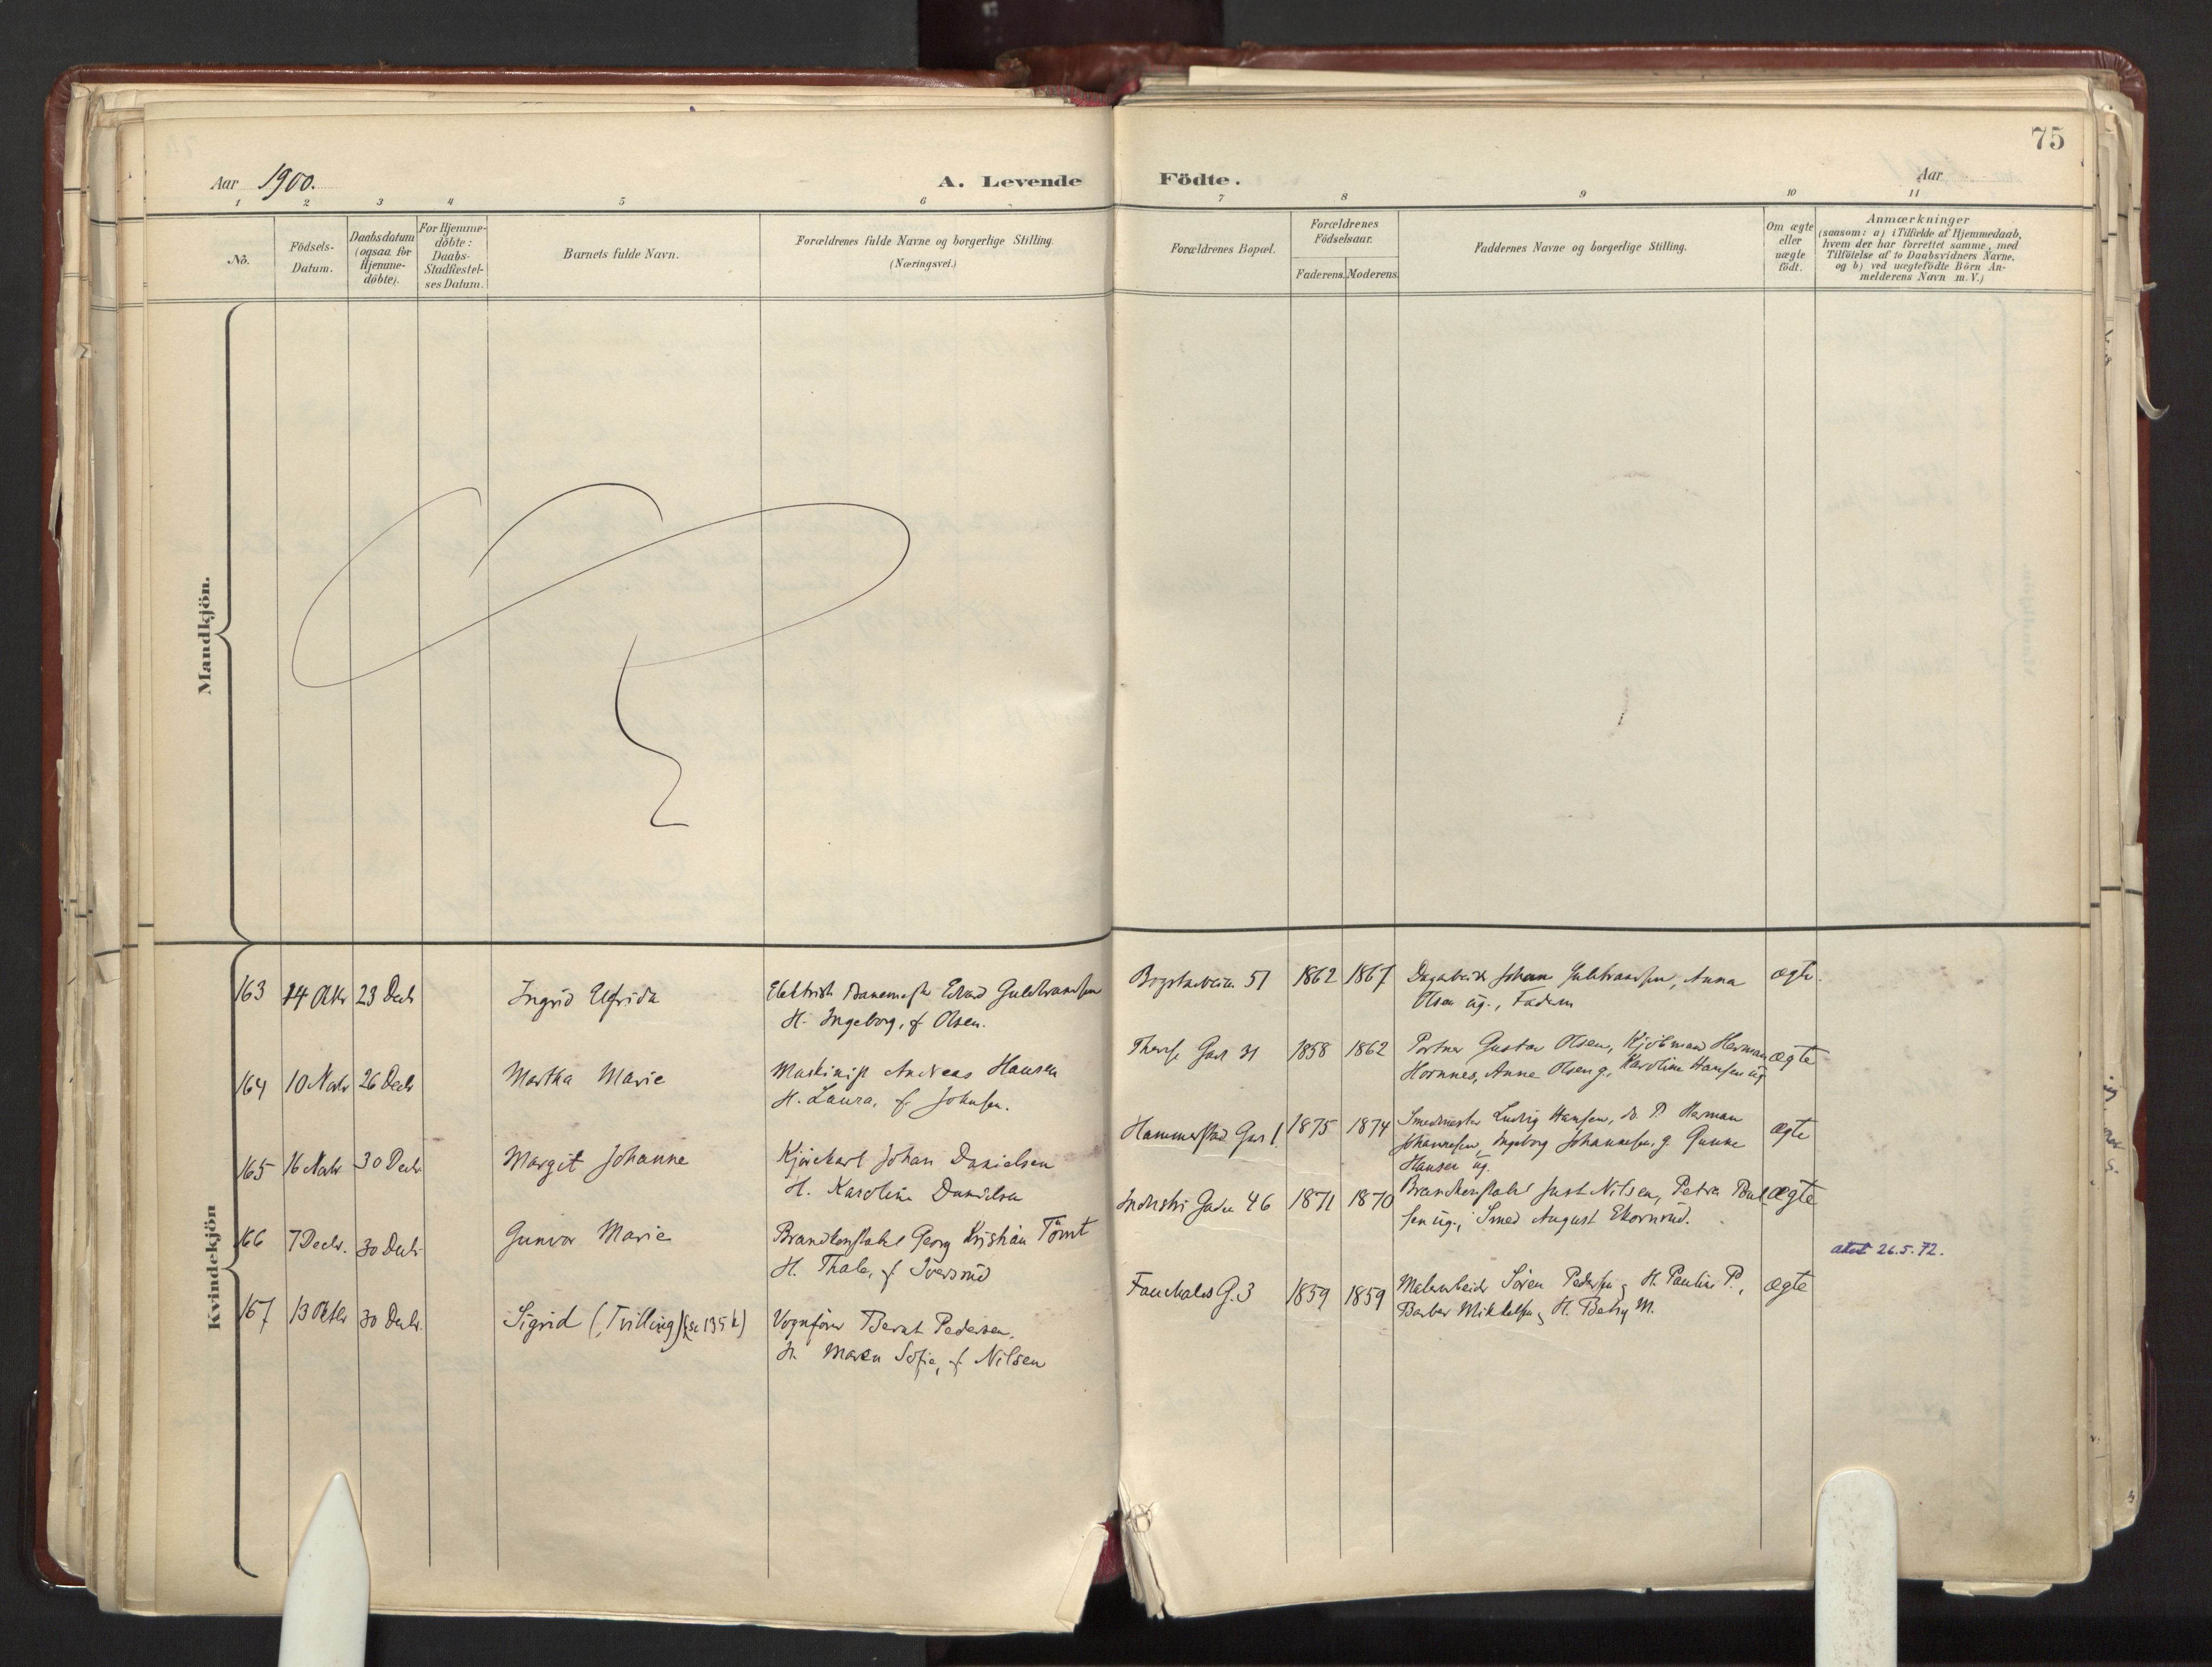 75
Aar 1900.
A. Levende Födte.
Aar
1 2 3 4 5 6 7 8 9 10 11
No.
Födsels-
Datum.
Daabsdatum
(ogsaa for
Hjemme-
döbte).
For Hjemme-
döbte:
Daabs-
Stadfæstel-
ses Datum.
Barnets fulde Navn.
Forældrenes fulde Navne og borgerlige Stilling.
(Næringsvei.)
Forældrenes Bopæl.
Forældrenes
Födselsaar.
Faderens. Moderens.
Faddernes Navne og borgerlige Stilling.
Om ægte
eller
uægte
födt.
Anmærkninger
(saasom: a) i Tilfælde af Hjemmedaab,
hvem der har forrettet samme, med
Tilföielse af to Daabsvidners Navne.
og b) ved uægtefödte Börn An-
melderens Navn m. V.)
Mandkjön.
Kvindekjön
163 14 Oktr 23 Decbr Ingrid Elfrida Elektrisk Banemester Edvard Guldbrandsen
H. Ingeborg, f. Olsen.
Bogstadveien 51 1862 1867 Johan Guldbrandsen, Anna
Olsen ug., Faderen
ægte.
164 10 Novbr 26 Decbr Martha Marie Maskinist Andreas Hansen
H. Laura, f. Johnsen.
Theres Gad 31 1858 1862 Portner Gustav Olsen, Kjöbmand Herman
Hornnes, Anne Olsen g., Karoline Hansen ug
ægte
165 16 Novbr 30 Decbr. Margit Johanne Kjörekarl Johan Danielsen
H. Karoline Danielsen
Hammerstad Gad 1. 1875 1874 Smedmester Ludvig Hansen, do. P. Herman
Johannesen, Ingeborg Johannesen, g. Gunne
Hansen ug.
ægte
166 7 Decbr. 30 Decbr Gunvor Marie Brandkonstabel Georg Kristian Tömt
H. Thale, f. Iversrud
Industri Gaden 46 1871 1870 Brandkonstabel Just Nilsen, Petra Paul-
sen ug., Smed August Ekornrud.
ægte
attest 26.5.72.
167 13 Oktbr 30 Decbr. Sigrid (Tvilling) (se 135 k) Vognförer Bernt Pedersen.
H. Maren Sofie, f. Nilsen
Fauchalds G. 3 1859 1859 Malerarbeider Sören Pedersen og H. Pauline P.,
Barber Mikkelsen og H. Betsy M.
ægte